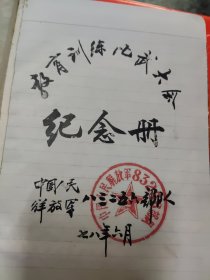 教育训练比武大会
纪念册
中国人民
解放军
八三二五六部队
七八年六月